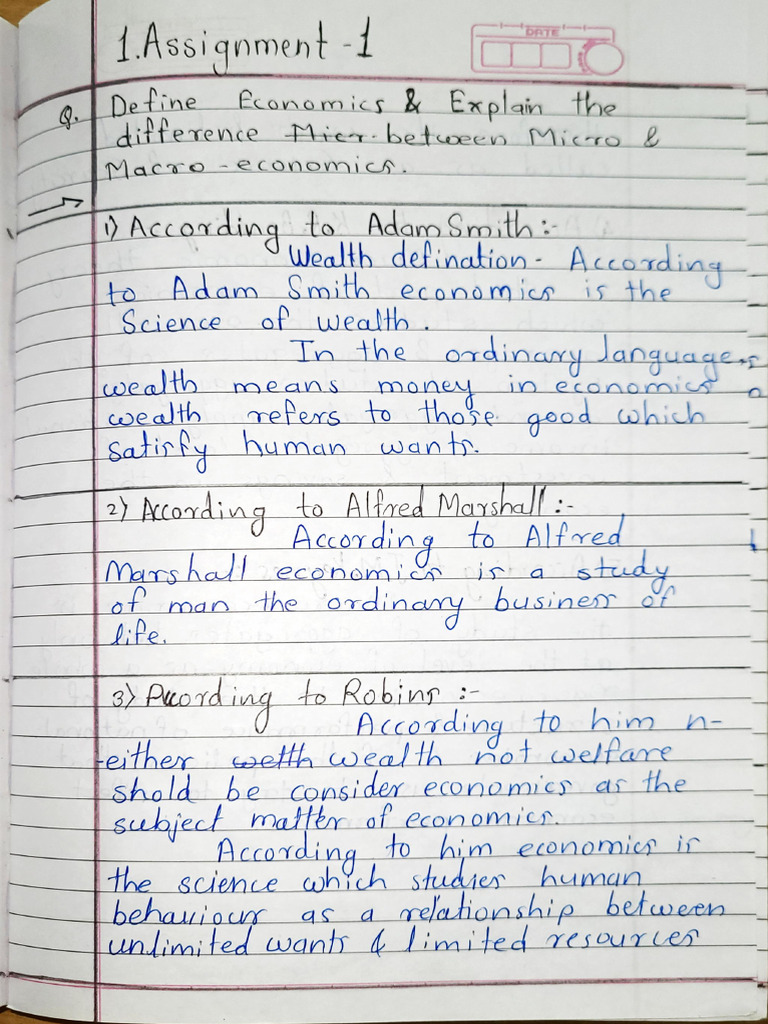 1. Assignment - 1
DATE
Q. Define Economics & Explain the
difference Micr. between Micro &
Macro - economics.
1) According to Adam Smith :-
Wealth defination - According
to Adam Smith economics is the
Science of wealth.
In the ordinary language,
wealth means money in economics
wealth refers to those good which
satisfy human wants.
2) According to Alfred Marshall :-
According to Alfred
Marshall economics is a study
of man the ordinary business of
life.
3) According to Robins :-
According to him n-
either welth wealth not welfare
shold be consider economics as the
subject matter of economics.
According to him economics is
the science which studies human
behaviour as a relationship between
unlimited wants & limited resources